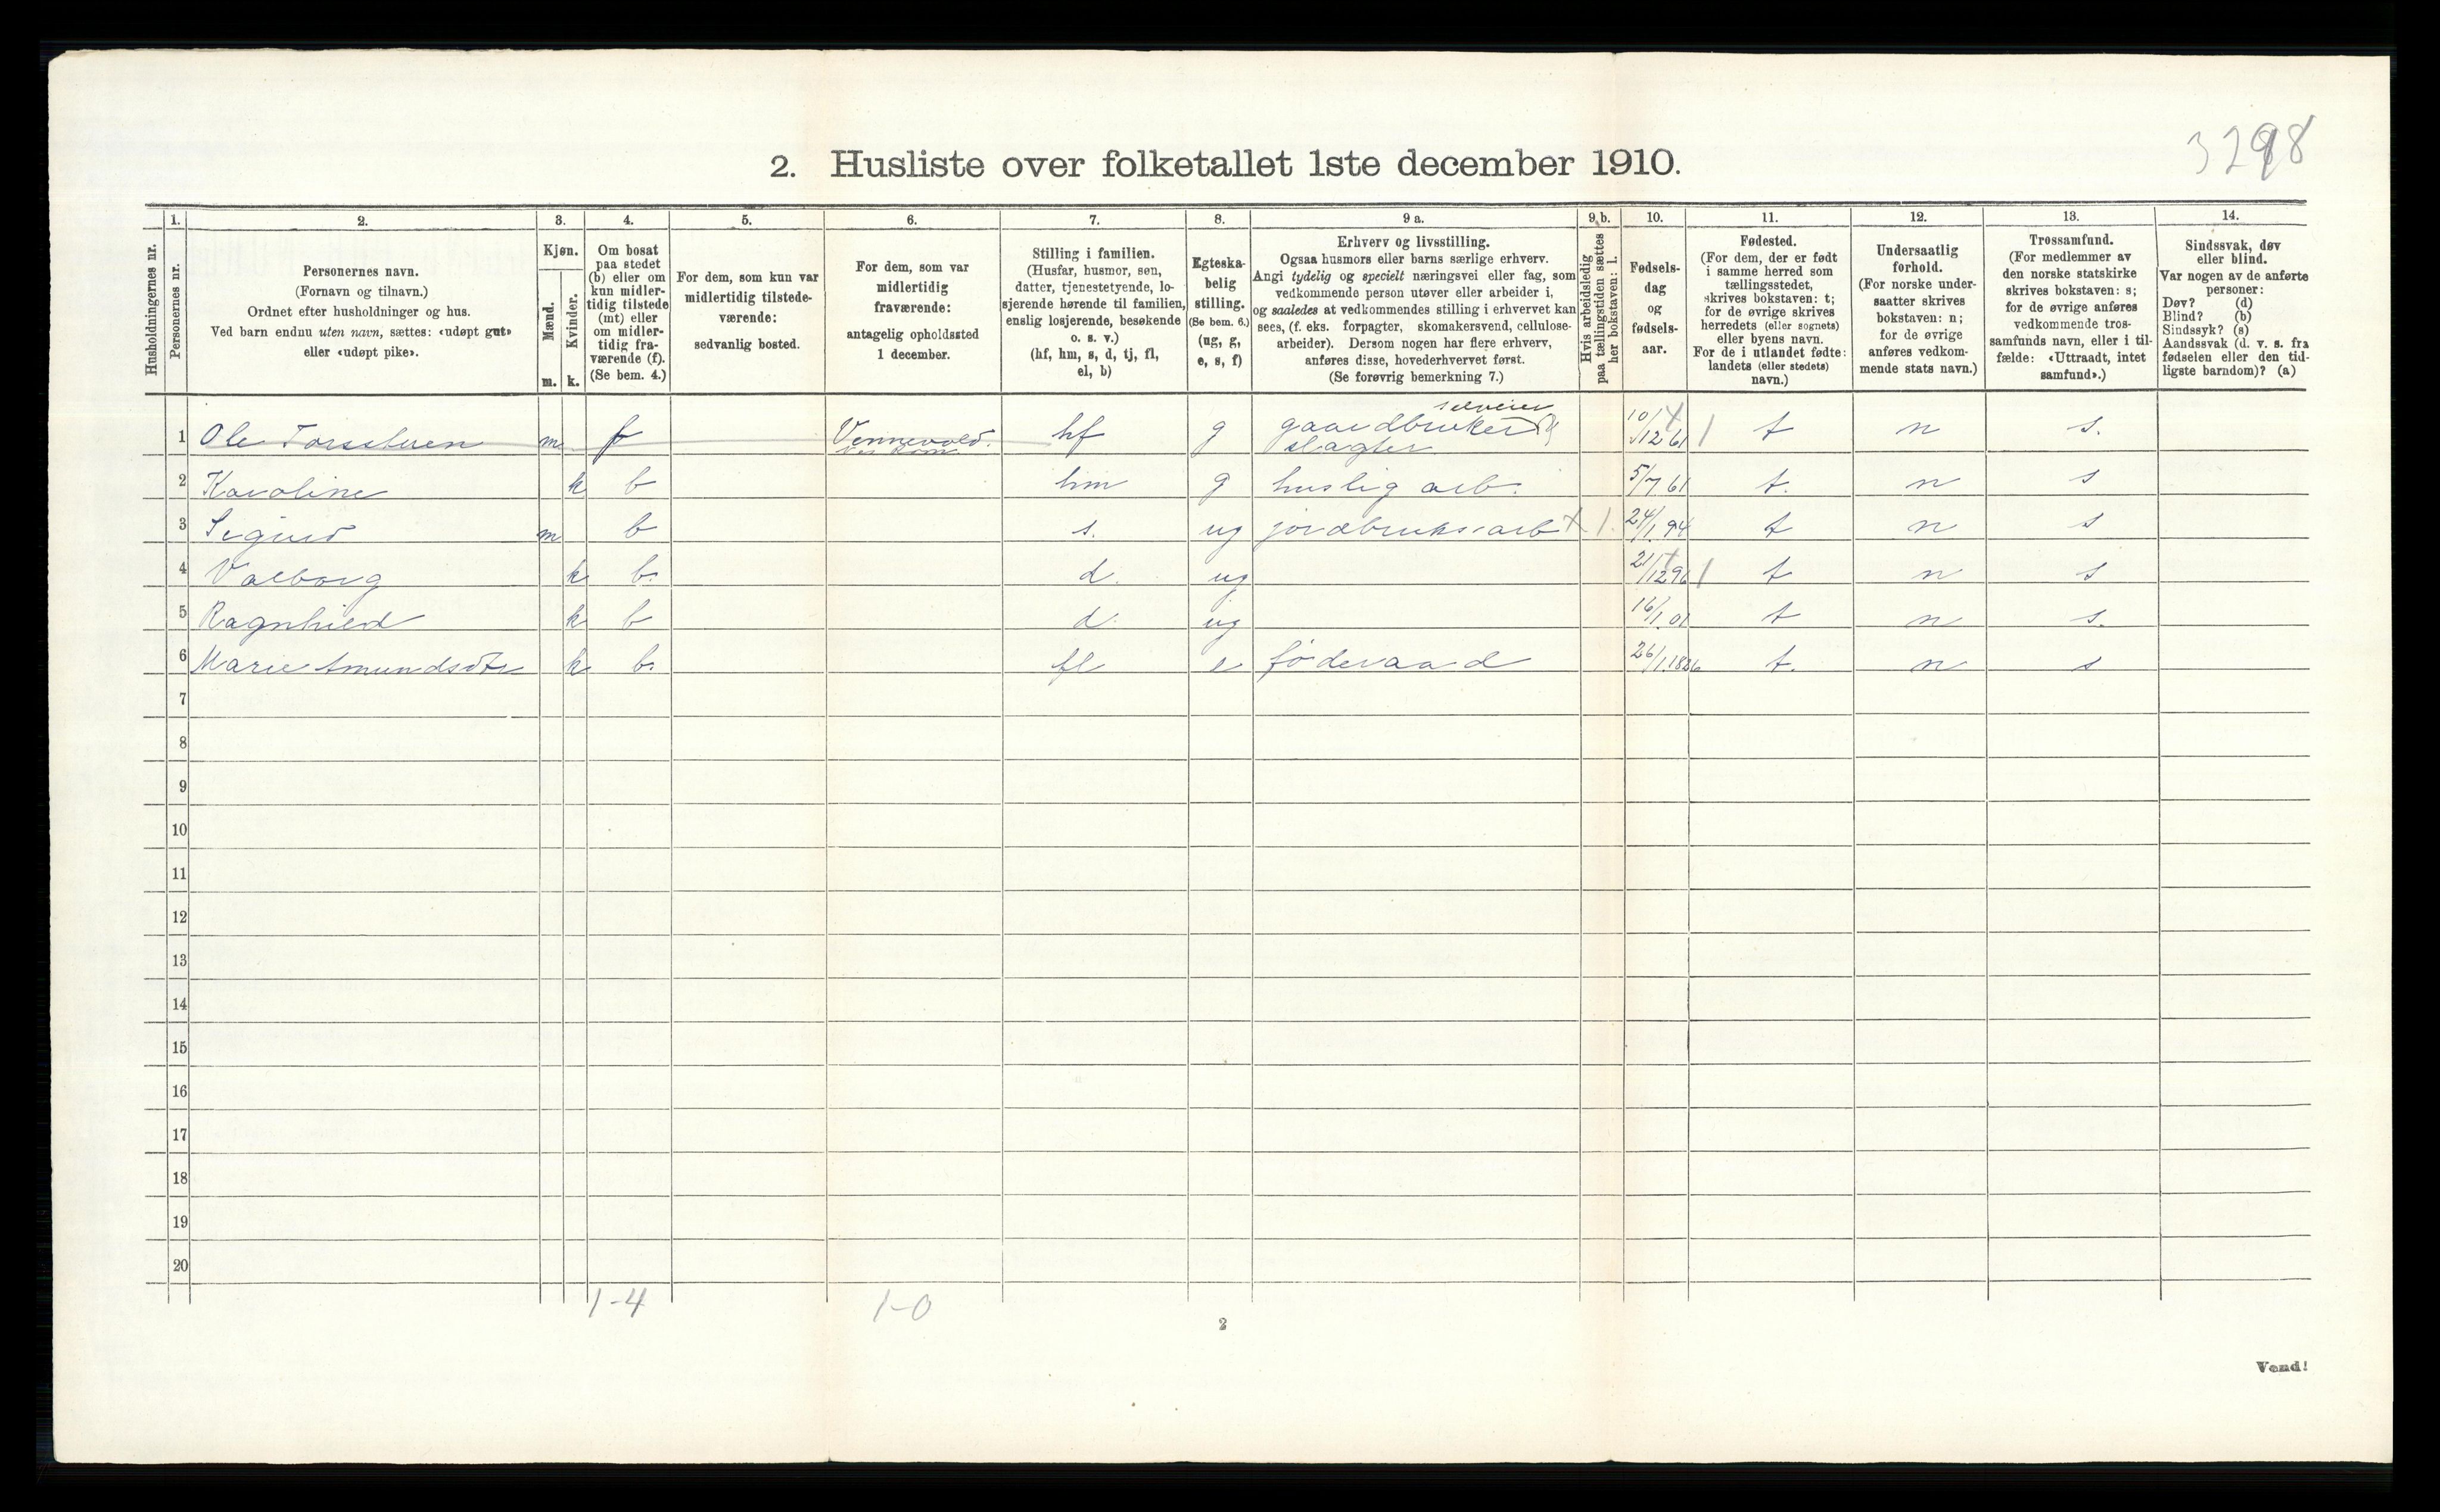 3298
2. Husliste over folketallet 1ste december 1910.
Husholdningernes nr.
1.
Personernes nr.
2.
Personernes navn.
(Fornavn og tilnavn.)
Ordnet efter husholdninger og hus.
Ved barn endnu uten navn, sættes: «udøpt gut»
eller «udøpt pike».
3.
Kjøn.
Mænd.
Kvinder.
m. k.
4.
Om bosat
paa stedet
(b) eller om
kun midler-
tidig tilstede
(mt) eller
om midler-
tidig fra-
værende (f).
(Se bem. 4.)
5.
For dem, som kun var
midlertidig tilstede-
værende:
sedvanlig bosted.
6.
For dem, som var
midlertidig
fraværende:
antagelig opholdssted
1 december.
7.
Stilling i familien.
(Husfar, husmor, søn,
datter, tjenestetyende, lo-
sjerende hørende til familien,
enslig losjerende, besøkende
o. s. v.)
(hf, hm, s, d, tj, fl,
el, b)
8.
Egteska-
belig
stilling.
(Se bem. 6.)
(ug, g,
e, s, f)
9 a.
Erhverv og livsstilling.
Ogsaa husmors eller barns særlige erhverv.
Angi tydelig og specielt næringsvei eller fag, som
vedkommende person utøver eller arbeider i,
og saaledes at vedkommendes stilling i erhvervet kan
sees, (f. eks. forpagter, skomakersvend, cellulose-
arbeider). Dersom nogen har flere erhverv,
anføres disse, hovederhvervet først.
(Se forøvrig bemerkning 7.)
9 b.
Hvis arbeidsledig
paa tællingstiden sættes
her bokstaven: l.
10.
Fødsels-
dag
og
fødsels-
aar.
11.
Fødested.
(For dem, der er født
i samme herred som
tællingsstedet,
skrives bokstaven: t;
for de øvrige skrives
herredets (eller sognets)
eller byens navn.
For de i utlandet fødte:
landets (eller stedets)
navn.)
12.
Undersaatlig
forhold.
(For norske under-
saatter skrives
bokstaven: n;
for de øvrige
anføres vedkom-
mende stats navn.)
13.
Trossamfund.
(For medlemmer av
den norske statskirke
skrives bokstaven: s;
for de øvrige anføres
vedkommende tros-
samfunds navn, eller i til-
fælde: «Uttraadt, intet
samfund».)
14.
Sindssvak, døv
eller blind.
Var nogen av de anførte
personer:
Døv? (d)
Blind? (b)
Sindssyk? (s)
Aandssvak (d. v. s. fra
fødselen eller den tid-
ligste barndom)? (a)
selveier
1 Ole m f Vennevold. hf g gaardbruker 10/12 61 t n s.
slagter
2 Karoline k b hm g huslig arb. 5/7 61 t. n s
3 Sigurd m b s. ug jordbruksarb l. 24/1 94 t n s
4 Valborg k b. d. ug 21/12 96 t n s
5 Ragnhild k b d. ug 16/1 01 t n s.
6 Marie Amundsdtr k b. fl e føderaad 26/1 1826 t. n s
7
8
9
10
11
12
13
14
15
16
17
18
19
20
1-4 1-0
2
Vend!